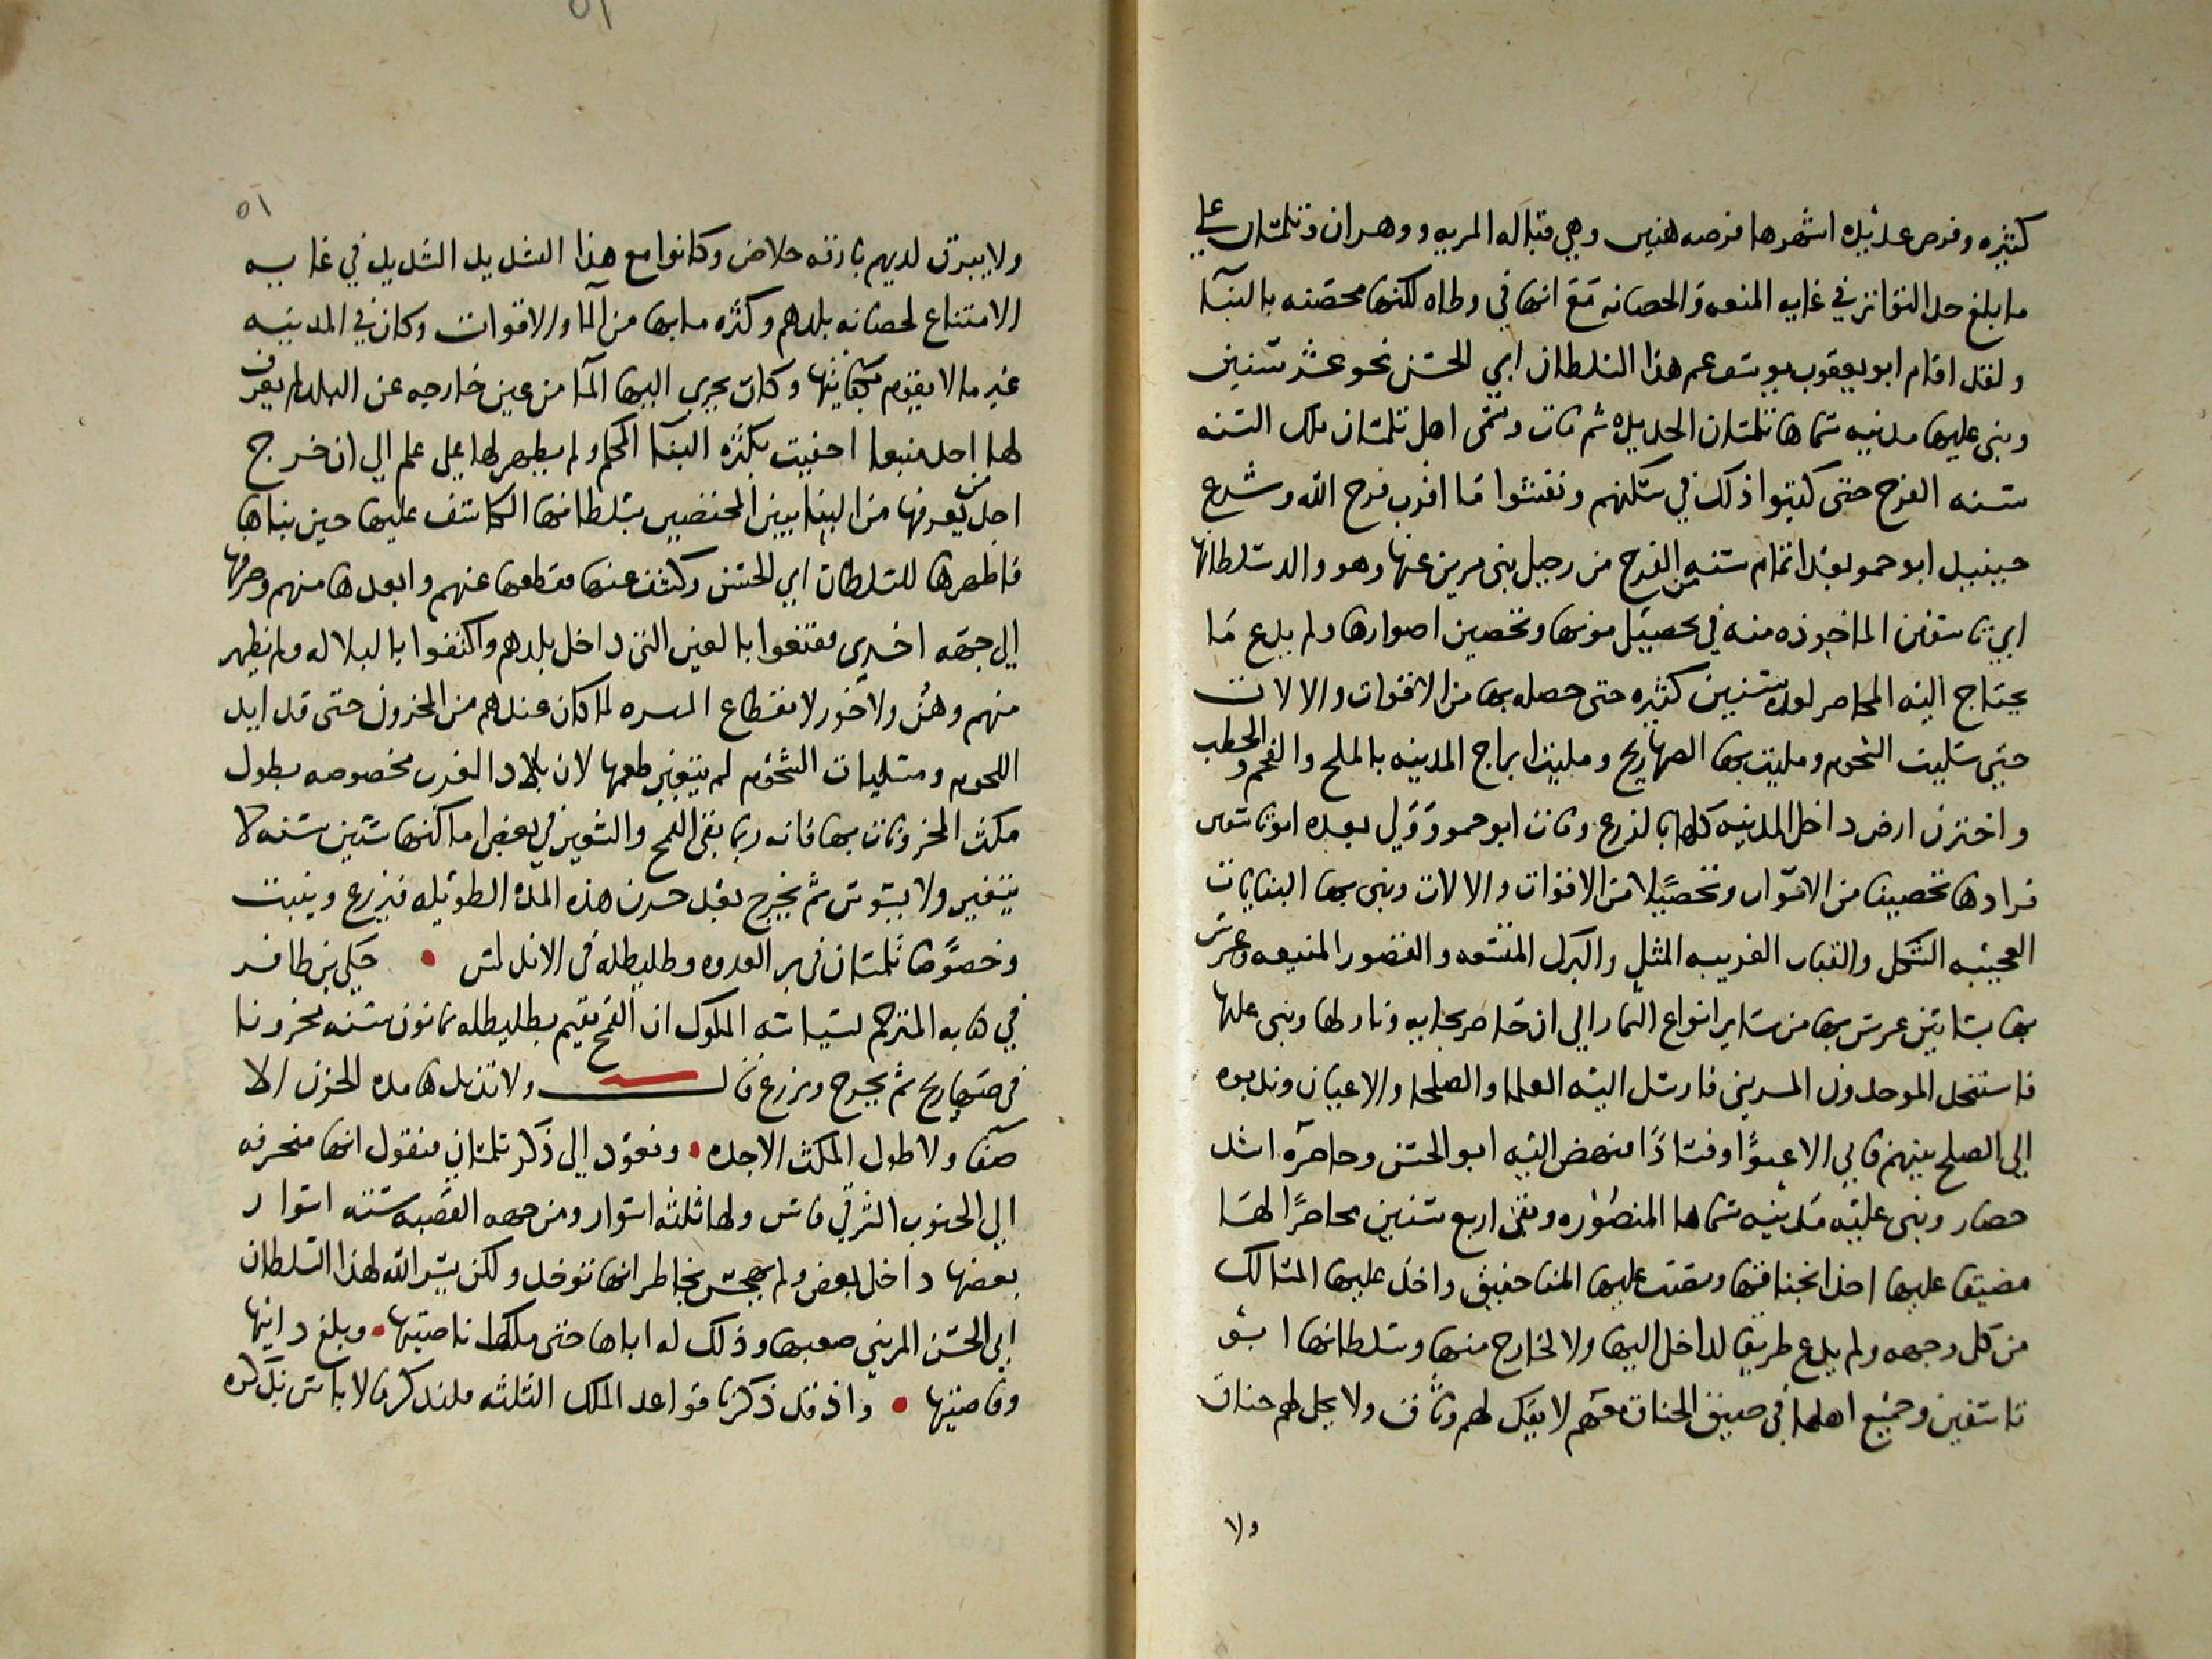 كثيره وفرض عديده اشهرها فرضه هنين وهي قباله المريه ووهران وتلمسان على
ما بلغ حد التواتر في غايه المنعه والحصانه مع انها في وطاه لكنها محصنه بالبنا
ولقد اقام ابو يعقوب يوسف عم هذا السلطان ابي الحسن نحو عشر سنين
وبنى عليها مدينه سماها تلمسان الجديده ثم مات وسمى اهل تلمسان تلك السنه
سنه الفرج حتى كتبوا ذلك في سككهم ونقشوا ما اقرب فرج الله وشرع
حينيد ابو حمو بعد اتمام سنه الفرج من رحيل بني مرين عنها وهو والد سلطانها
ابي تاشفين الماخوذه منه في تحصيل مونها وتحصين اصوارها ولم يدع ما
يحتاج اليه المحاصر لعده سنين كثيره حتى حصله بها من الاقوات والالات
حتى سليت الشحوم ومليت بها الصهاريج ومليت ابراج المدينه بالملح والفحم والحطب
واختزن ارض داخل المدينه كلها بالزرع ومات ابو حمو وولي بعده ابو تاشفين
فزادها تحصينا من الاسوار وتحصيلا من الاقوات والالات وبنى بها البنايات
العجيبه الشكل والقباب الغريبه المثل والبرك المتسعه والقصور المنيعه وغرس
بها بساتين غرس بها من ساير انواع الثمار الى ان حاصر بجايه ونازلها وبنى عليها
فاستنجد الموحدون المريني فارسل اليه العلما والصلحا والاعيان وندبوه
الى الصلح بينهم فابى الا عتوا وفسادا فنهض اليه ابو الحسن وحاصره اشد
حصار وبنى عليه مدينه سماها المنصوره وبقى اربع سنين محاصرا لها
مضيقا عليها اخذا بخناقها ونصبت عليها المناجنيق واخذ عليها المسالك
من كل وجهه ولم يدع طريقا لداخل اليها ولا لخارج منها وسلطانها ابو
تاشفين وجميع اهلها في ضيق الخناق معهم لا يفك لهم وثاق ولا يحل لهم خناق
ولا
٥١
ولا يبرق لديهم بارقه خلاص وكانوا مع هذا التشديد الشديد في غايه
الامتناع لحصانه بلدهم وكثره ما بها من الما والاقوات وكان في المدينه
عين ما لا يقوم بكفايتها وكان يجري اليها الما من عين خارجه عن البلد لم يعرف
لها احد منبعا اخفيت بكثره البنا المحكم ولم يظهر لها على علم الى ان خرج
احد من يعرفها من البنايين المختصين بسلطانها الكاشف عليها حين بناها
فاظهرها للسلطان ابي الحسن وكشف عنها فقطعها عنهم وابعدها منهم وصرفها
الى جهه اخرى فقنعوا بالعين التي داخل بلدهم واكتفوا بالبلاله ولم يظهر
منهم وهن ولا خور لانقطاع الميره لما كان عندهم من المخزون حتى قدايد
اللحوم ومسليات الشحوم لم يتغير طعمها لان بلاد الغرب مخصوصه بطول
مكث المخزونات بها فانه ربما بقى القمح والشعير في بعض اماكنها ستين سنه لا
يتغير ولا يسوس ثم يخرج بعد خزن هذه المده الطويله فيزرع وينبت
وخصوصا تلمسان في بر العدوه وطليطله في الاندلس • حكى بن ظافر
في كتابه المترجم بسياسه الملوك ان القمح يقيم بطليطله ثمانون سنه مخزونا
في صهاريج ثم يخرج ويزرع قال ولا تزيدها مده الخزن الا
صفا ولا طول المكث الا جده • ونعود الى ذكر تلمسان فنقول انها منحرفه
الى الجنوب الشرقي فاس ولها ثلثه اسوار ومن جهه القصبه سته اسوار
بعضها داخل بعض ولم يهجس بخاطر انها توخذ ولكن يسر الله لهذا السلطان
ابي الحسن المريني صعبها وذلك له اباها حتى ملك ناصيتها • وبلغ دانيها
وقاصيتها • واذ قد ذكرنا قواعد الملك الثلثه فلنذكر ما لا باس بذكره